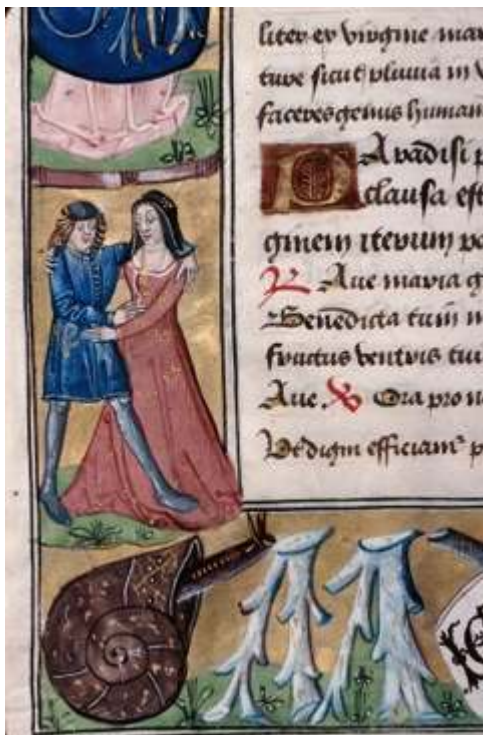 liter ex virgine mar
ture sicut pluuia in v
faceres genus human
Paradisi p
clausa est
ginem iterum pa
V Aue maria g
Benedicta tu in m
fructus ventris tui
Aue. V Ora pro n
Vt digni efficiam² p